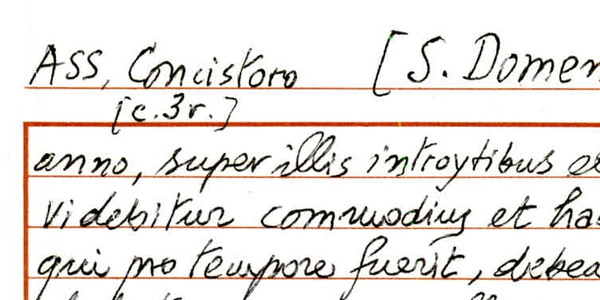 ASS, Concistoro [S. Domen
[c.3r.]
anno, super illis introytibus e
videbitur commodius et ha
qui pro tempore fuerit, debea